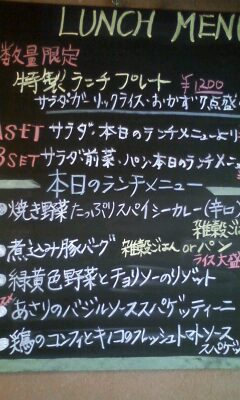 LUNCH MENU
数量限定
特製ランチプレート ¥1200
サラダ・ガーリックライス・おかず7点盛
ASET サラダ・本日のランチメニューより
BSET サラダ前菜・パン・本日のランチメニュー
本日のランチメニュー
焼き野菜たっぷりスパイシーカレー(辛口)
雑穀ごはん
煮込み豚バーグ 雑穀ごはん or パン
ライス大盛
緑黄色野菜とチョリソーのリゾット
あさりのバジルソーススパゲッティーニ
鶏のコンフィとキノコのフレッシュトマトソース
スパゲッ